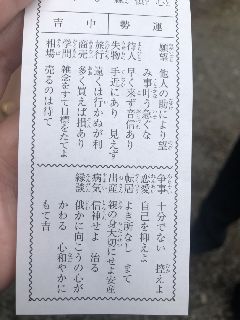 運勢
中吉
願望 他人の助により望み事叶う急ぐな
待人 早く来ず音信あり
失物 手近にあり 見えず
旅行 遠くは行かぬが利
商売 多く買えば損あり
学問 雑念をすて目標をたてよ
相場 売るのは待て
争事 十分でない 控えよ
恋愛 自己を抑えよ
転居 よき所なし まて
出産 親の身大切にせよ安産
病気 信神せよ 治る
縁談 俄かに向こうの心がかわる 心和やかにもて吉